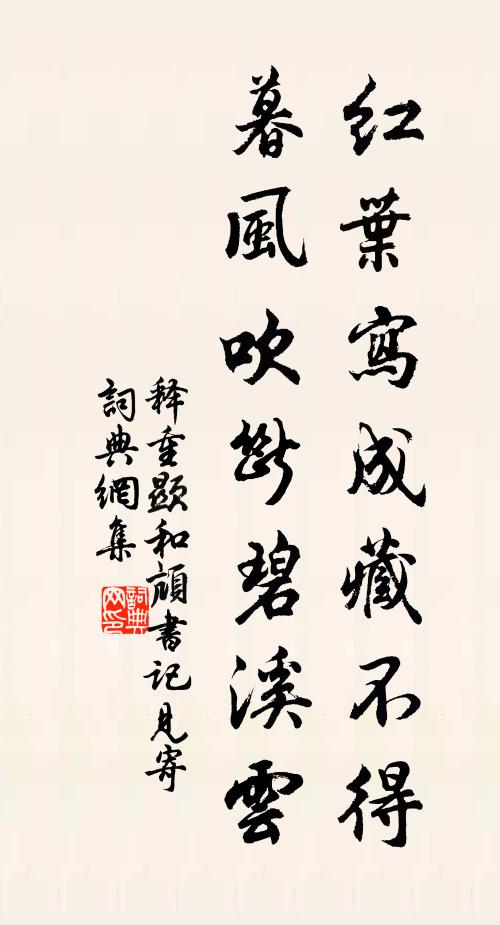 紅葉寫成藏不得
暮風吹斷碧溪雲
釋重顯和頑書記見寄
詞典網集
詞典网印